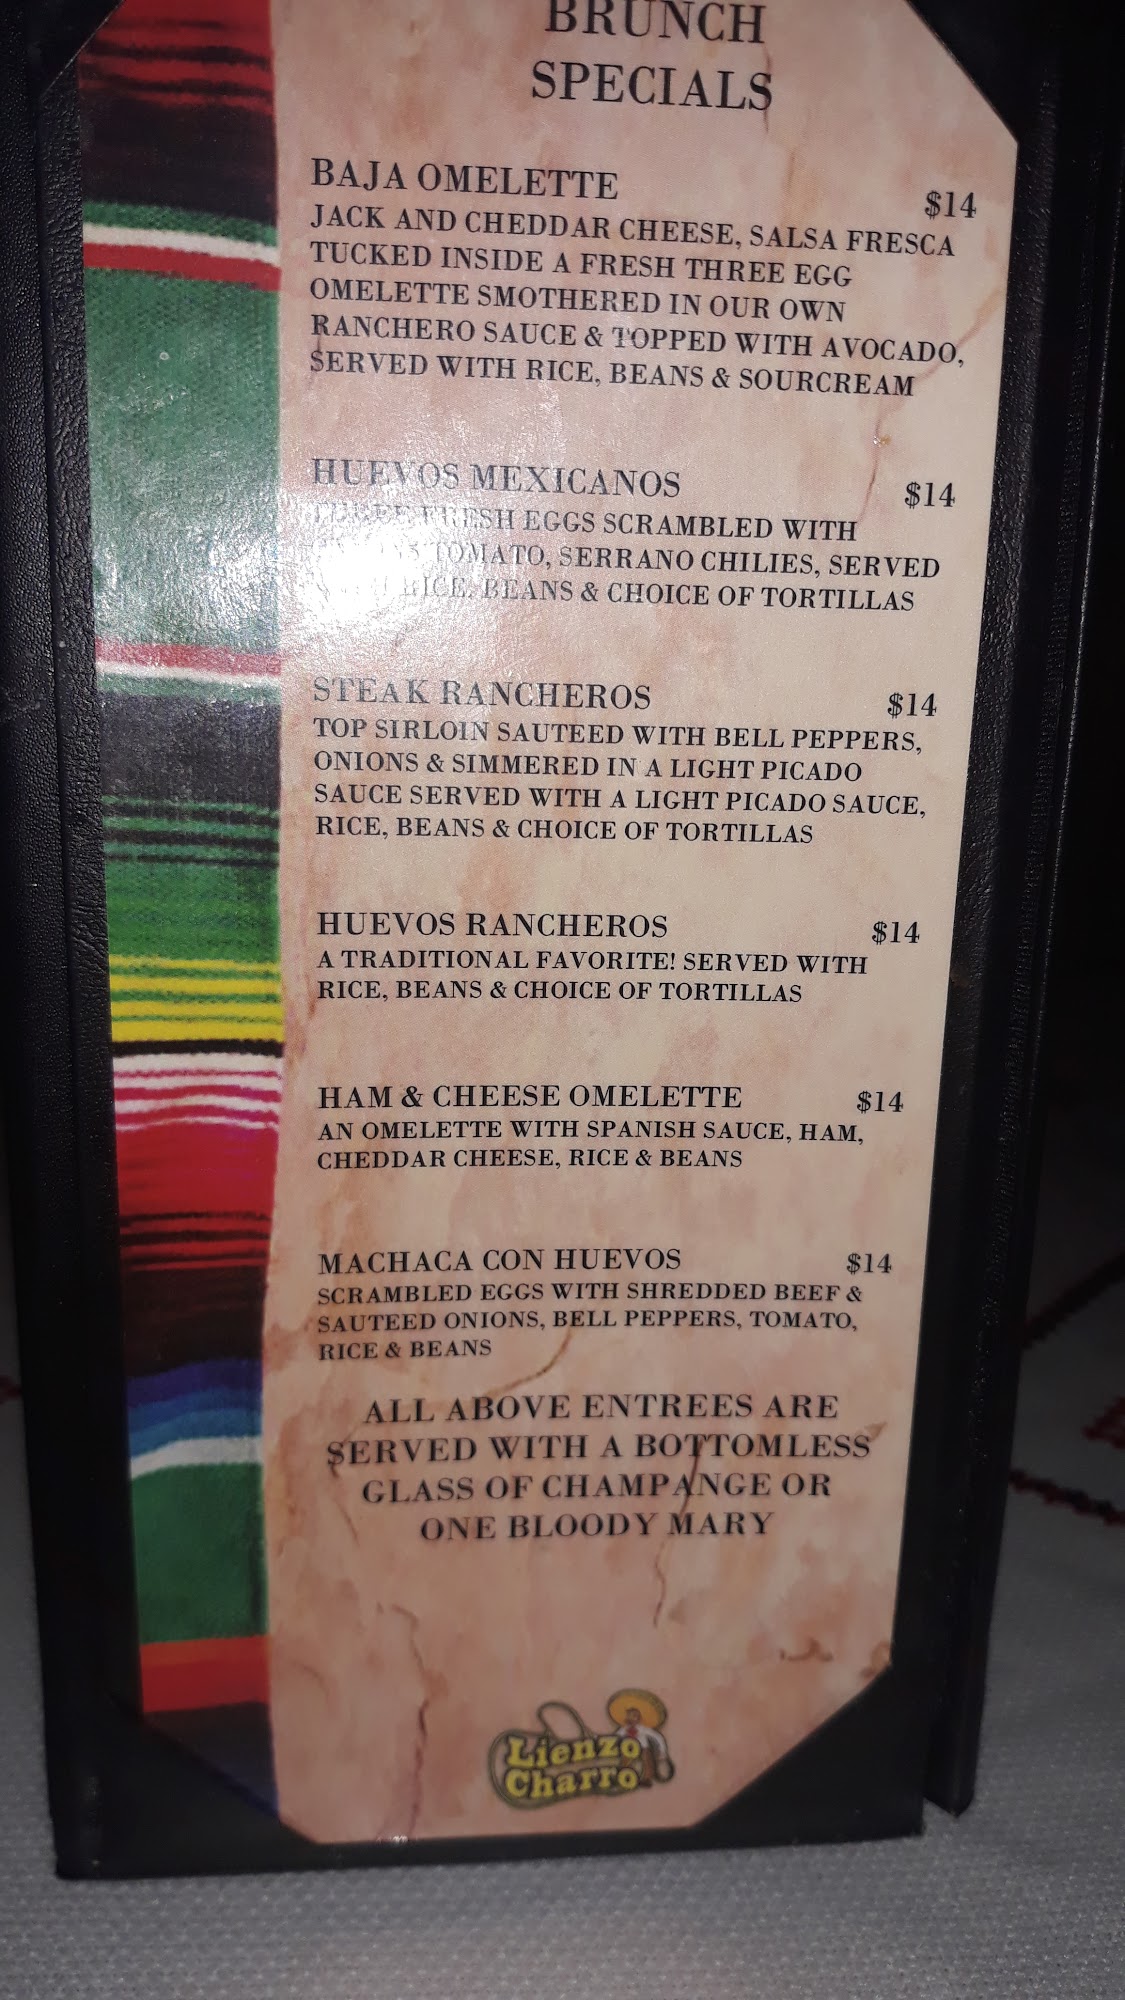 BRUNCH
SPECIALS
BAJA OMELETTE $14
JACK AND CHEDDAR CHEESE, SALSA FRESCA
TUCKED INSIDE A FRESH THREE EGG
OMELETTE SMOTHERED IN OUR OWN
RANCHERO SAUCE & TOPPED WITH AVOCADO,
SERVED WITH RICE, BEANS & SOURCREAM
HUEVOS MEXICANOS $14
THREE FRESH EGGS SCRAMBLED WITH
TOMATO, SERRANO CHILIES, SERVED
WITH RICE, BEANS & CHOICE OF TORTILLAS
STEAK RANCHEROS $14
TOP SIRLOIN SAUTEED WITH BELL PEPPERS,
ONIONS & SIMMERED IN A LIGHT PICADO
SAUCE SERVED WITH A LIGHT PICADO SAUCE,
RICE, BEANS & CHOICE OF TORTILLAS
HUEVOS RANCHEROS $14
A TRADITIONAL FAVORITE! SERVED WITH
RICE, BEANS & CHOICE OF TORTILLAS
HAM & CHEESE OMELETTE $14
AN OMELETTE WITH SPANISH SAUCE, HAM,
CHEDDAR CHEESE, RICE & BEANS
MACHACA CON HUEVOS $14
SCRAMBLED EGGS WITH SHREDDED BEEF &
SAUTEED ONIONS, BELL PEPPERS, TOMATO,
RICE & BEANS
ALL ABOVE ENTREES ARE
SERVED WITH A BOTTOMLESS
GLASS OF CHAMPANGE OR
ONE BLOODY MARY
Lienzo
Charro